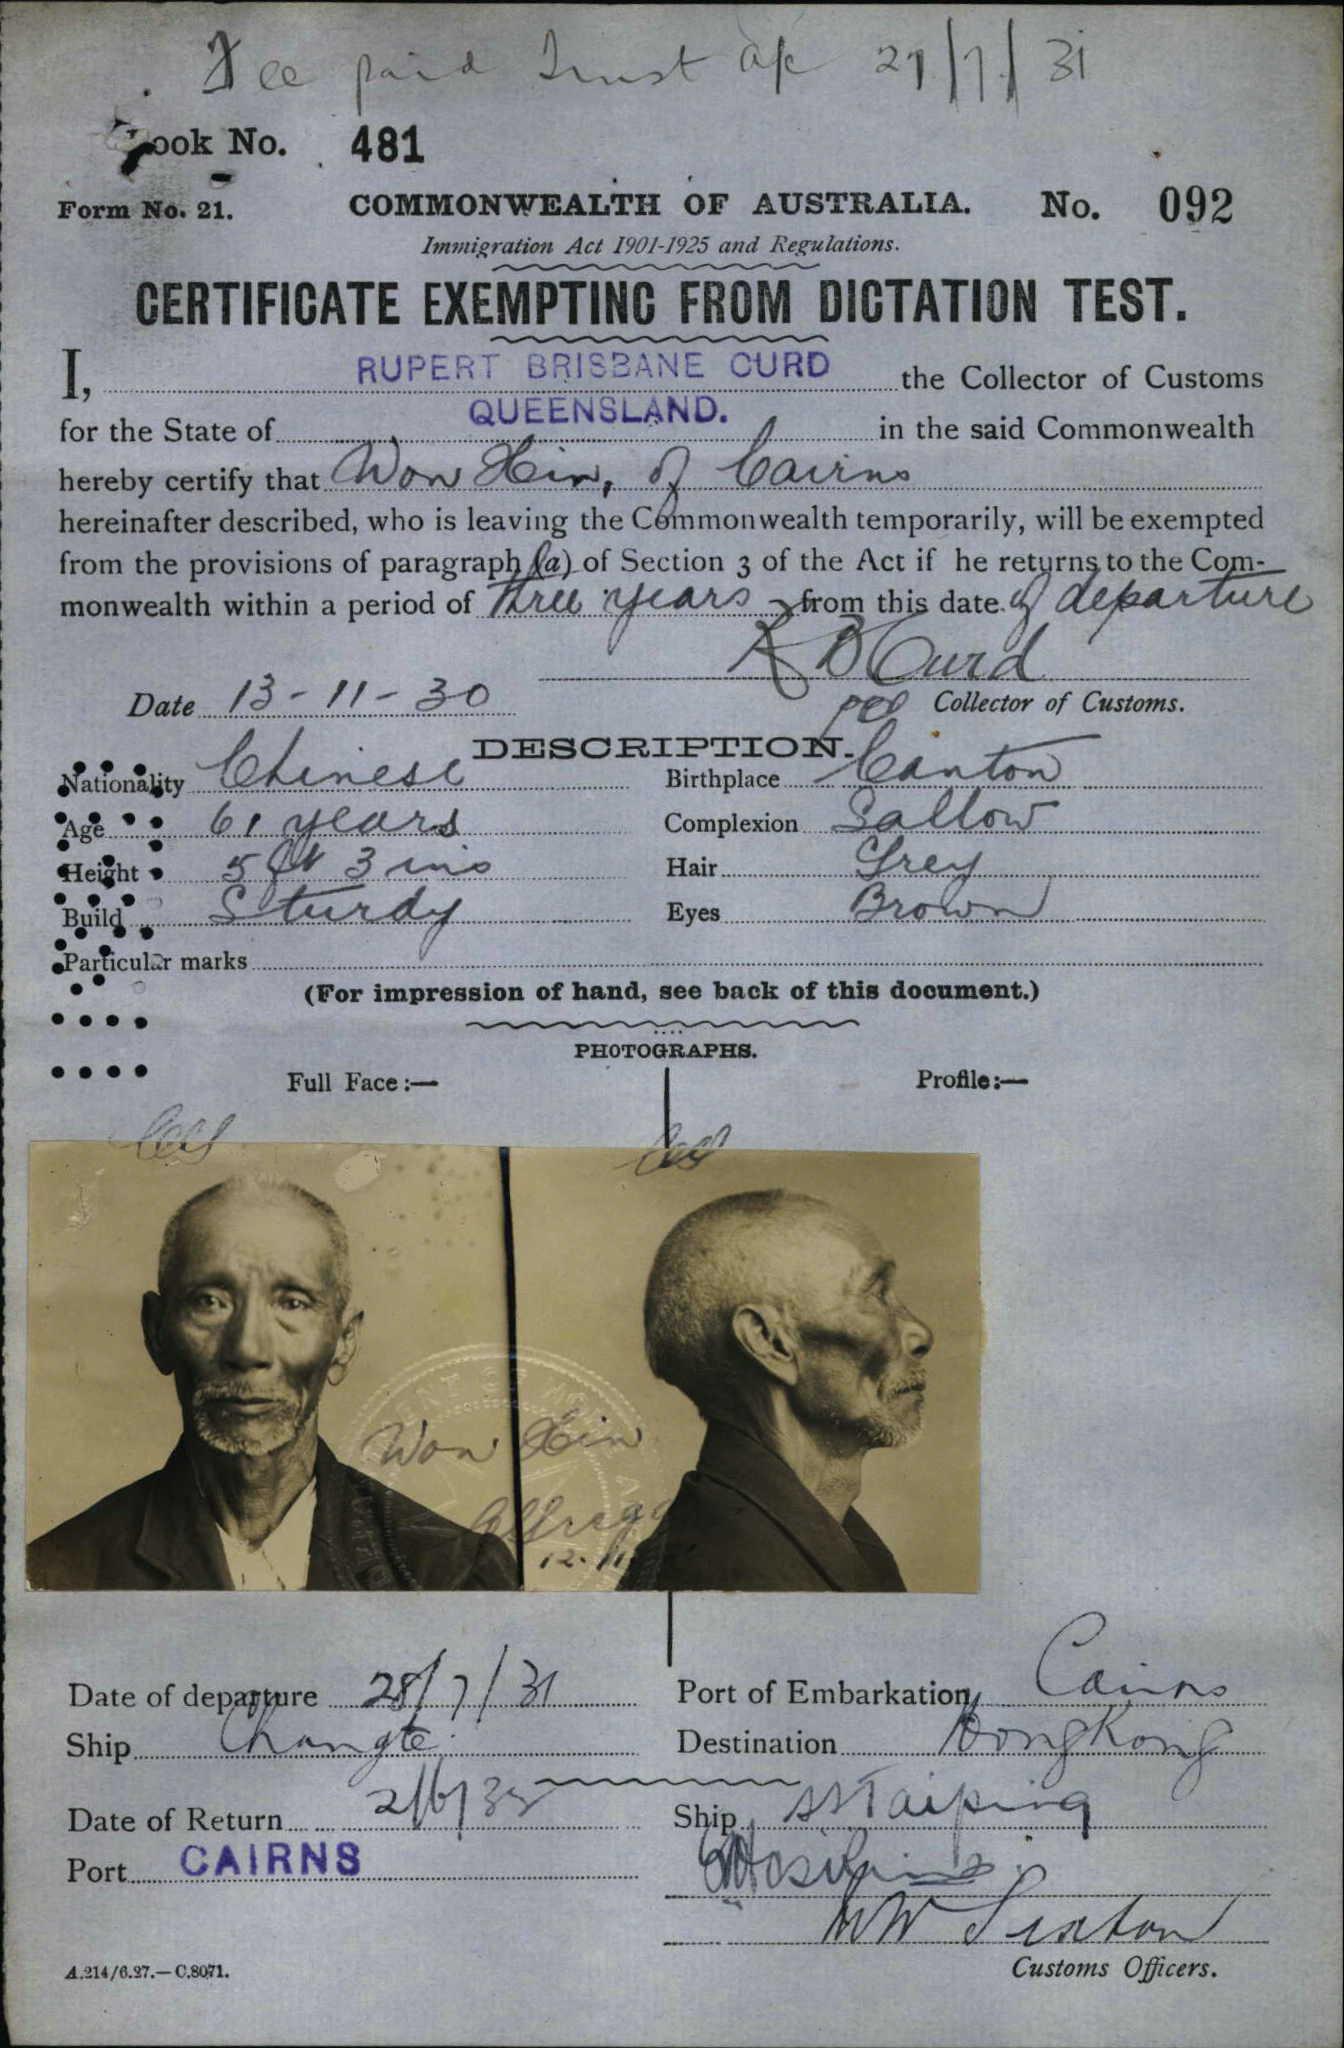 Fee paid Trust a/c 27/7/31
Book No. 481
Form No. 21. COMMONWEALTH OF AUSTRALIA. No. 092
Immigration Act 1901-1925 and Regulations.
CERTIFICATE EXEMPTING FROM DICTATION TEST.
I, RUPERT BRISBANE CURD the Collector of Customs
for the State of QUEENSLAND. in the said Commonwealth
hereby certify that Won Hin, of Cairns
hereinafter described, who is leaving the Commonwealth temporarily, will be exempted
from the provisions of paragraph (a) of Section 3 of the Act if he returns to the Com-
monwealth within a period of three years from this date of departure
R B Curd
Date 13-11-30 Collector of Customs.
DESCRIPTION.
Nationality Chinese Birthplace Canton
Age 61 years Complexion Sallow
Height 5 ft 3 ins Hair Grey
Build Sturdy Eyes Brown
Particular marks
(For impression of hand, see back of this document.)
PHOTOGRAPHS.
Full Face:— Profile:—
Won Hin
12.11
Date of departure 28/7/31 Port of Embarkation Cairns
Ship Changte Destination HongKong
Date of Return 2/6/33 Ship SS Taiping
Port CAIRNS
Customs Officers.
A.214/6.27.—C.8071.